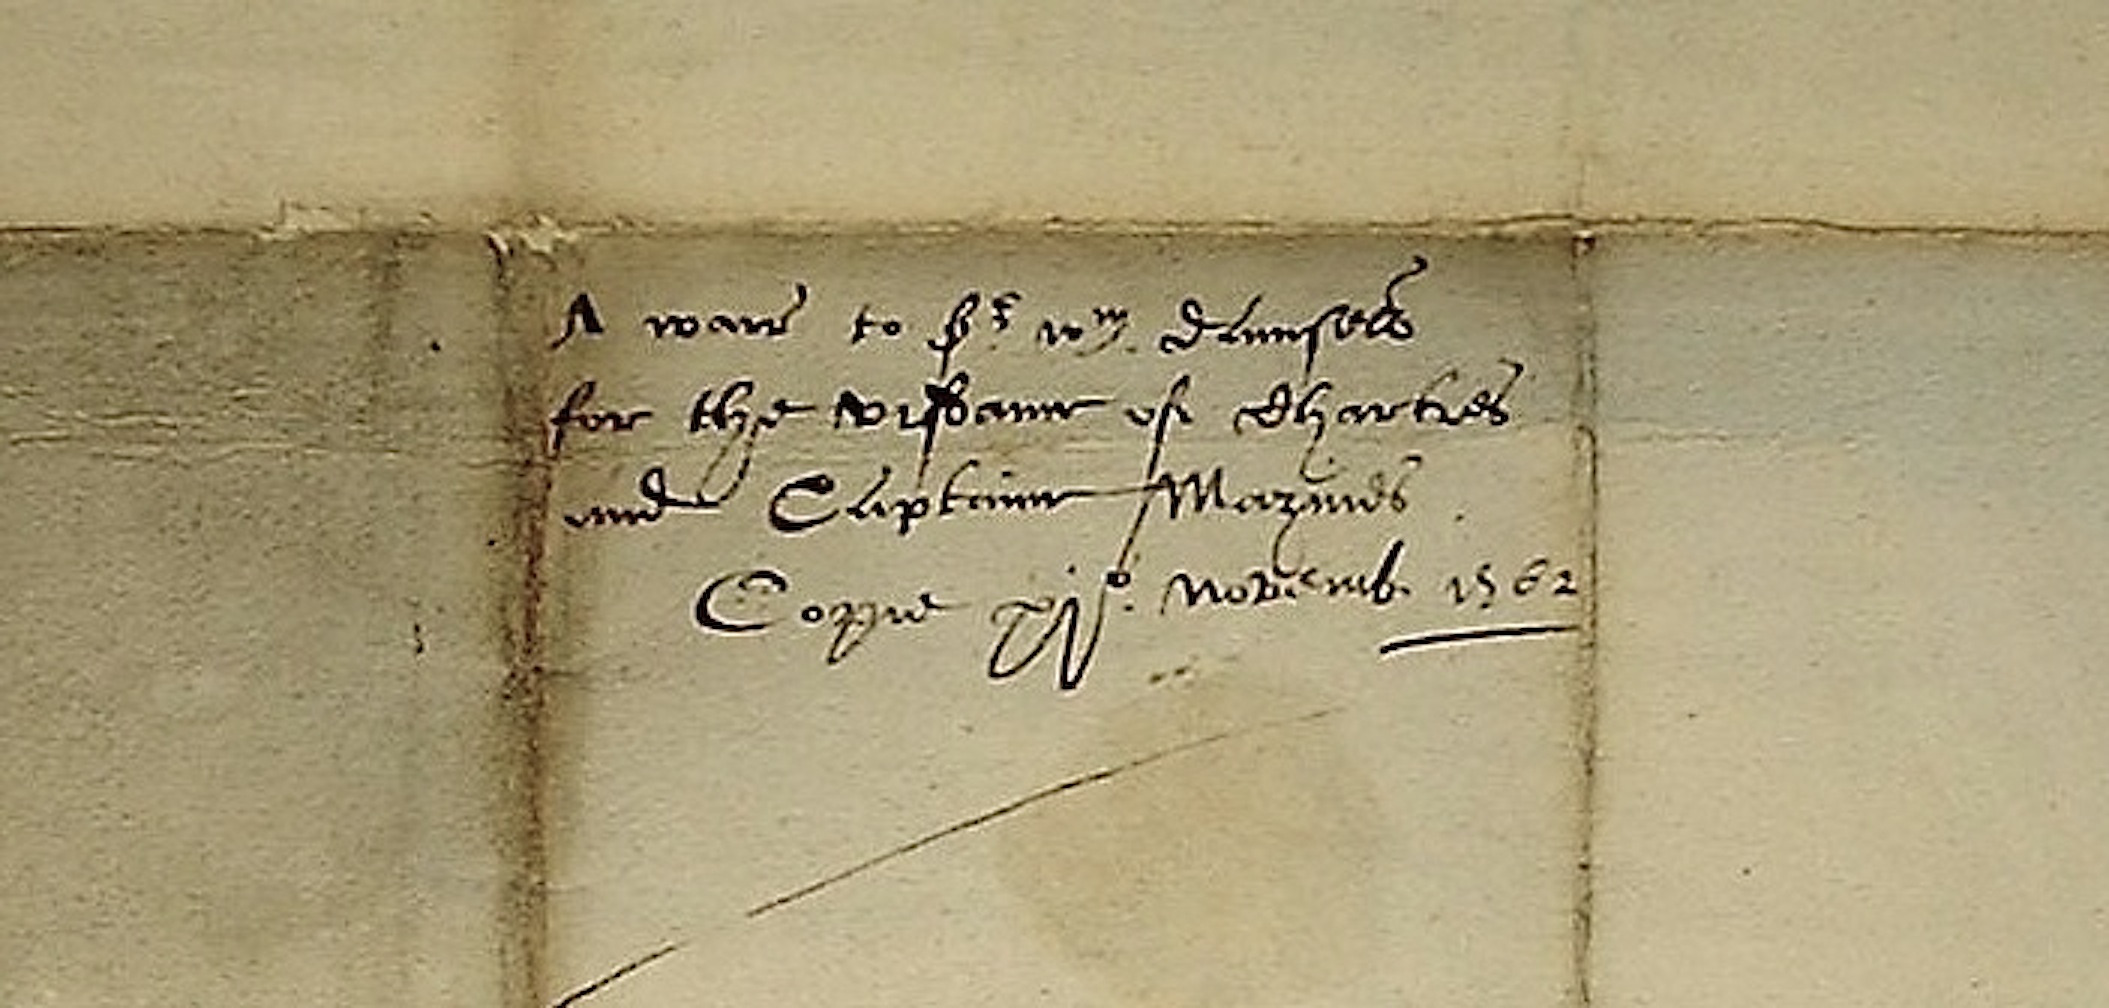 A warr to Sr wm damsell
for the visdame of Chartres
and Captaine Mazines
Copie Novemb. 1562